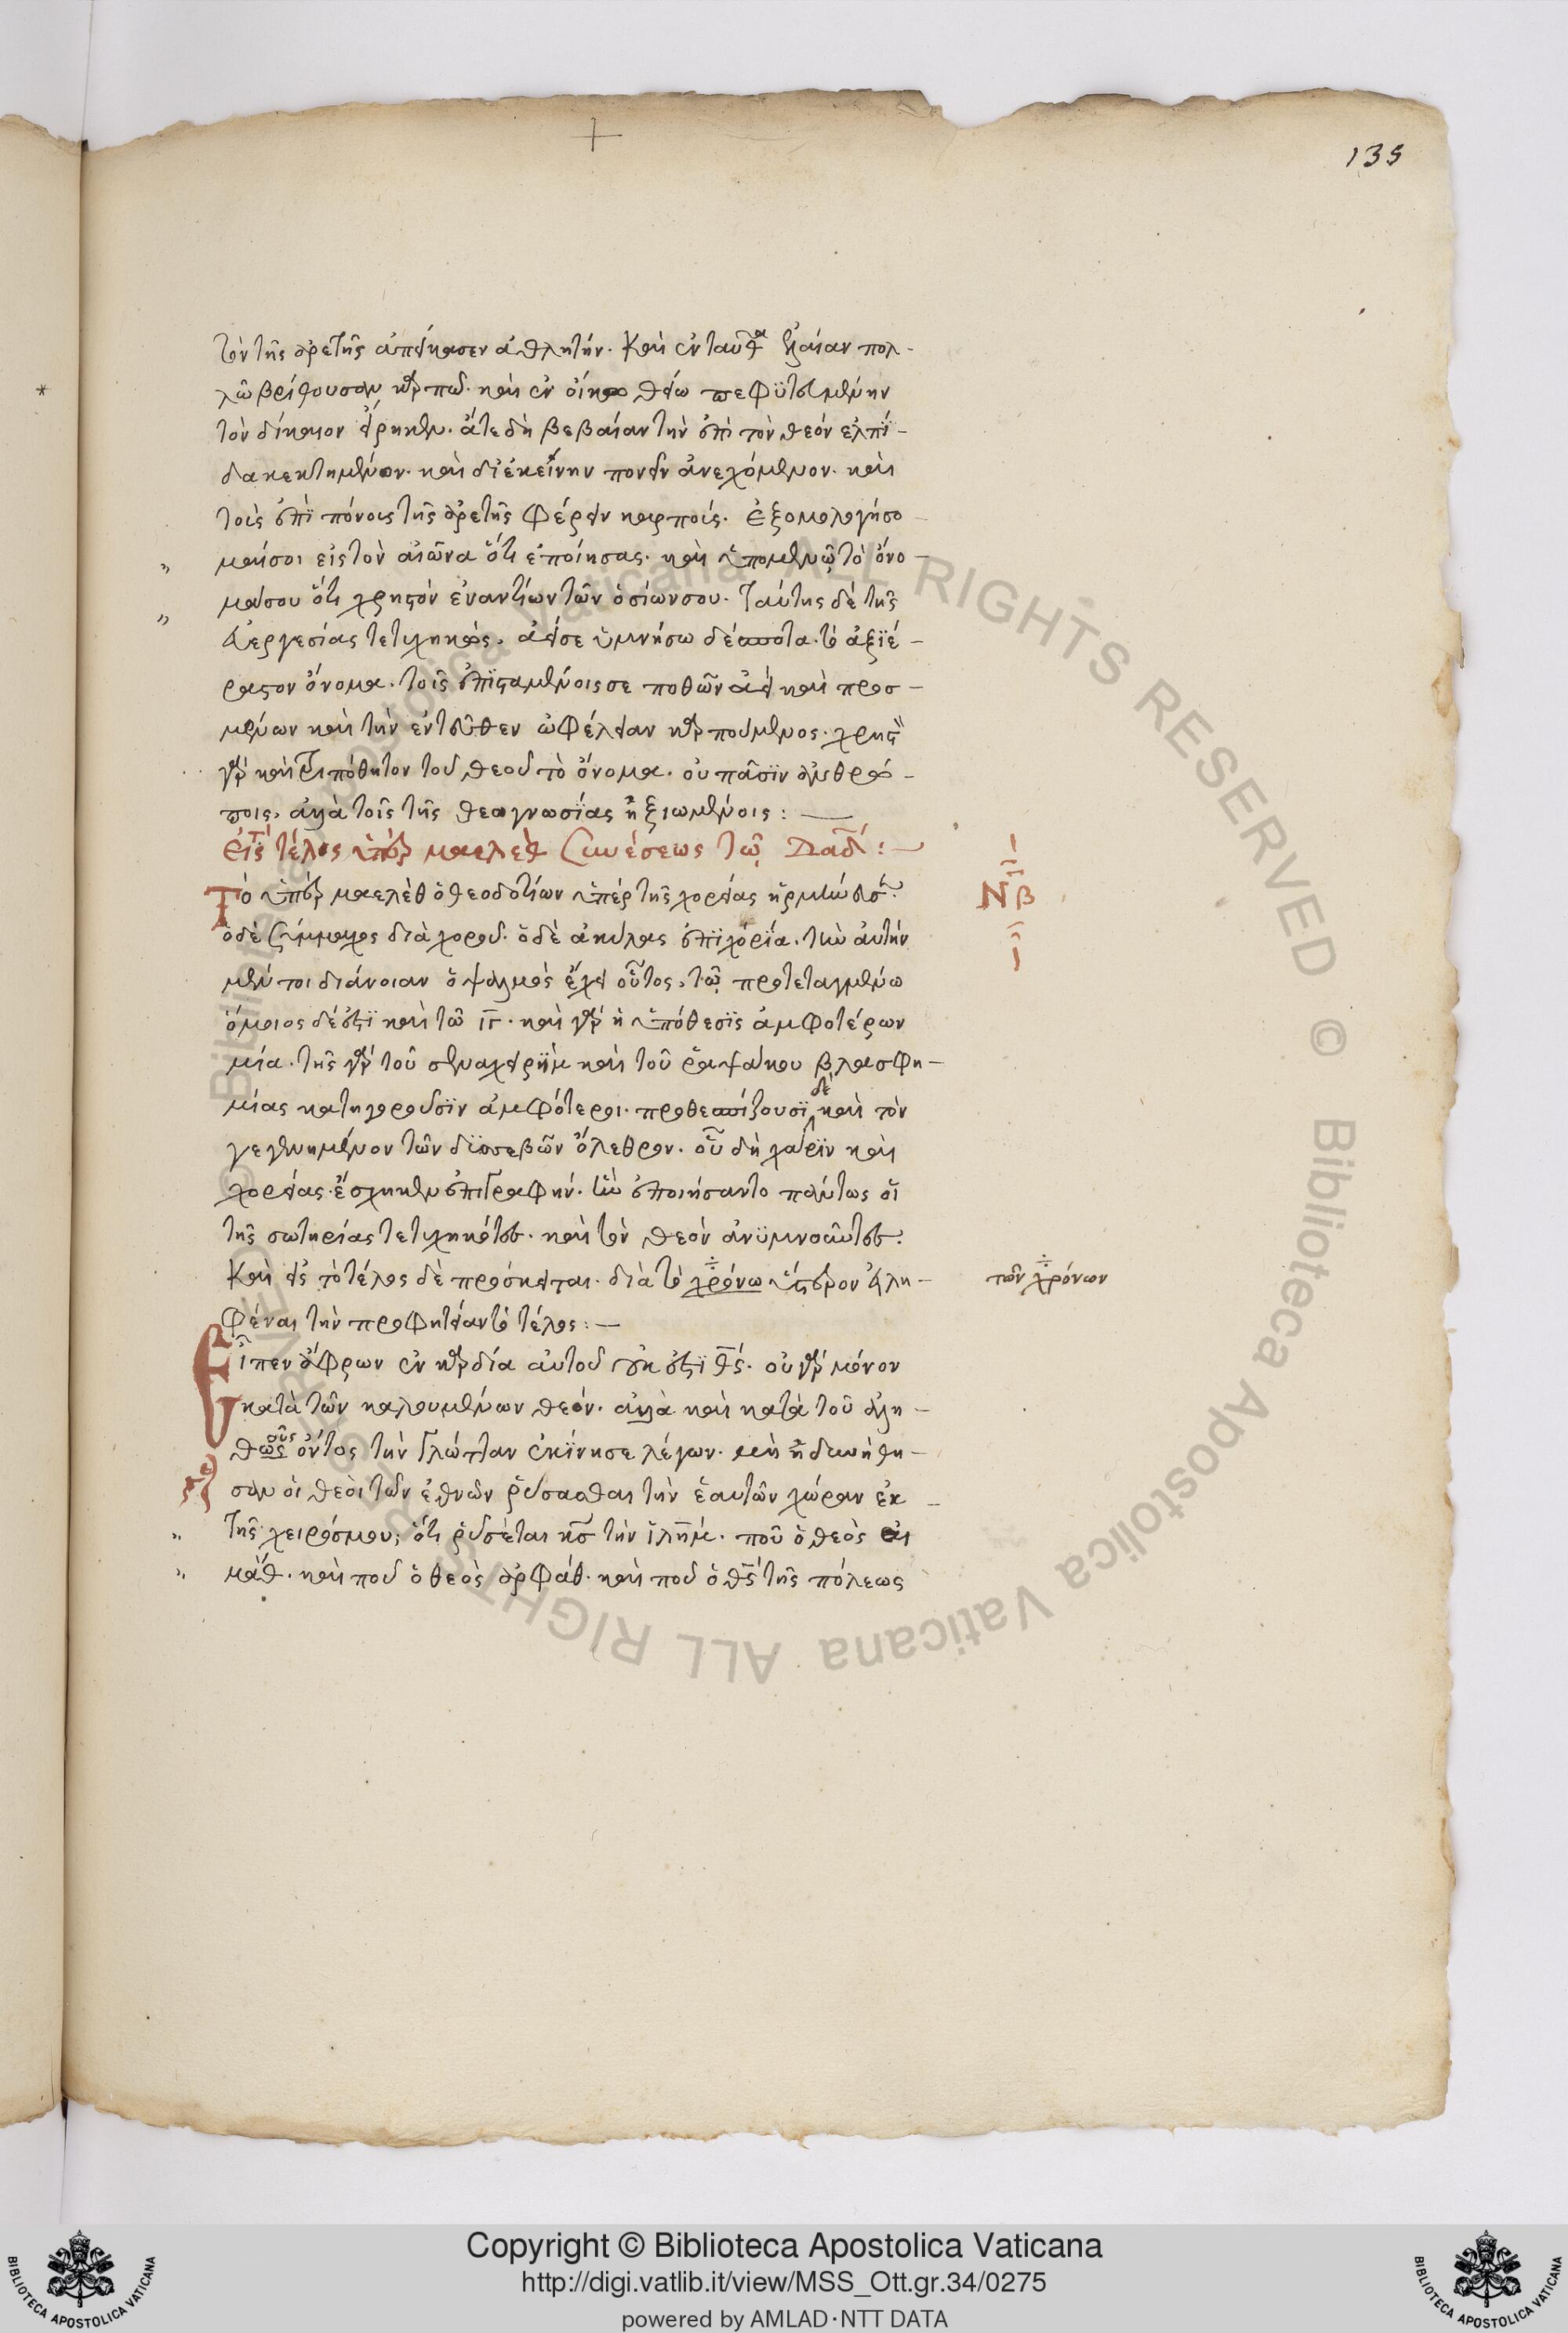 135
τὸν τῆς ἀρετῆς ἀπείκασεν ἀθλητήν. Καὶ ἐνταῦθα ἐλαίαν πολ-
λῶ βρίθουσαν καρπῶ. καὶ ἐν οἴκω θείω πεφϋτευμένην
τὸν δίκαιον εἴρηκεν. ἅτε δὴ βεβαίαν τὴν ἐπὶ τὸν θεόν ελπί-
δα κεκτημένον. καὶ δι' ἐκείνην πονεῖν ἀνεχόμενον. καὶ
τοὶς ἐπὶ πόνοις τῆς ἀρετῆς φέρειν καρποίς. Ἐξομολογήσο-
μαίσοι εἰς τὸν αἰῶνα ὅτι ἐποίησας. καὶ ὑπομενῶ τὸ ὄνο-
μα σου ὅτι χρηστόν ἐναντίων τῶν ὁσίων σου. Ταύτης δὲ τῆς
εὐεργεσίας τετυχηκώς. ἀεί σε ὑμνήσω δέσποτα. τὸ ἀξιέ-
ραστον ὄνομα. τοῖς ἐπϊσταμένοις σε ποθῶν ἀεὶ καὶ προσ-
μένων καὶ τὴν ἐντεῦθεν ὠφέλειαν καρπούμενος. χρηστὸν
γὰρ καὶ τριπόθητον τοῦ θεοῦ τὸ ὄνομα. οὐ πᾶσϊν ἀνθρώ-
ποις. ἀλλὰ τοῖς τῆς θεογνωσίας ἠξιωμένοις:—
Εἰς τὸ τέλος ὑπὲρ μαελὲθ συνέσεως τῶ Δαδ:—
ΝΒ
Τὸ ὑπὲρ μαελὲθ ὁ θεοδοτίων ὑπὲρ τῆς χορείας ἡρμήνευσεν.
ὁ δὲ σύμμαχος διὰ χοροῦ. ὁ δὲ ἀκύλας ἐπϊ χορεία. τὴν ἀυτήν
μέν τοι διάνοιαν ὁ ψαλμὸς ἔχει οὗτος, τῶ προτεταγμένω
ὅμοιος δέ ἐστϊ καὶ τῶ ΙΓ. καὶ γὰρ ἡ ὑπόθεσϊς ἀμφοτέρων
μία. τῆς γὰρ τοῦ σεναχειρὶμ καὶ τοῦ ῥαψάκου βλασφη-
μίας κατηγοροῦσϊν ἀμφότεροι. προθεσπίζουσϊ δὲ καὶ τὸν
γεγενημένον τῶν δϋσσεβῶν ὄλεθρον. οὗ δὴ χάρϊν καὶ
χορείας ἔσχηκεν ἐπιγραφήν. ἣν ἐποιήσαντο πάντως οἱ
τῆς σωτηρίας τετυχηκότες. καὶ τὸν θεὸν ἀνϋμνοῦντες.
Καὶ εἰς τὸ τέλος δὲ πρόσκειται. διὰ τὸ χρόνω ὕστερον εἰλη-
τῶν χρόνων
φέναι τὴν προφητείαν τὸ τέλος:—
Εἶπεν ἄφρων ἐν καρδία αὐτοῦ οὐκ ἔστϊ θς. οὐ γὰρ μόνον
κατὰ τῶν καλουμένων θεόν. ἀλλὰ καὶ κατὰ τοῦ ἀλη-
θῶς οῦς ὄντος τὴν γλώτταν ἐκϊνησε λέγων. μὴ ἠδυνήθη-
σαν οἱ θεὸι τῶν ἐθνῶν ῥύσασθαι τὴν ἑαυτῶν χώραν ἐκ
τῆς χειρόσμου; ὅτι ῥύσεται κς τὴν ϊλημ. ποῦ ὁ θεὸς αἰ
μάθ. καὶ ποῦ ὁ θεὸς ἀρφάθ. καὶ ποῦ ὁ θς τῆς πόλεως
Copyright © Biblioteca Apostolica Vaticana
http://digi.vatlib.it/view/MSS_Ott.gr.34/0275
powered by AMLAD·NTT DATA